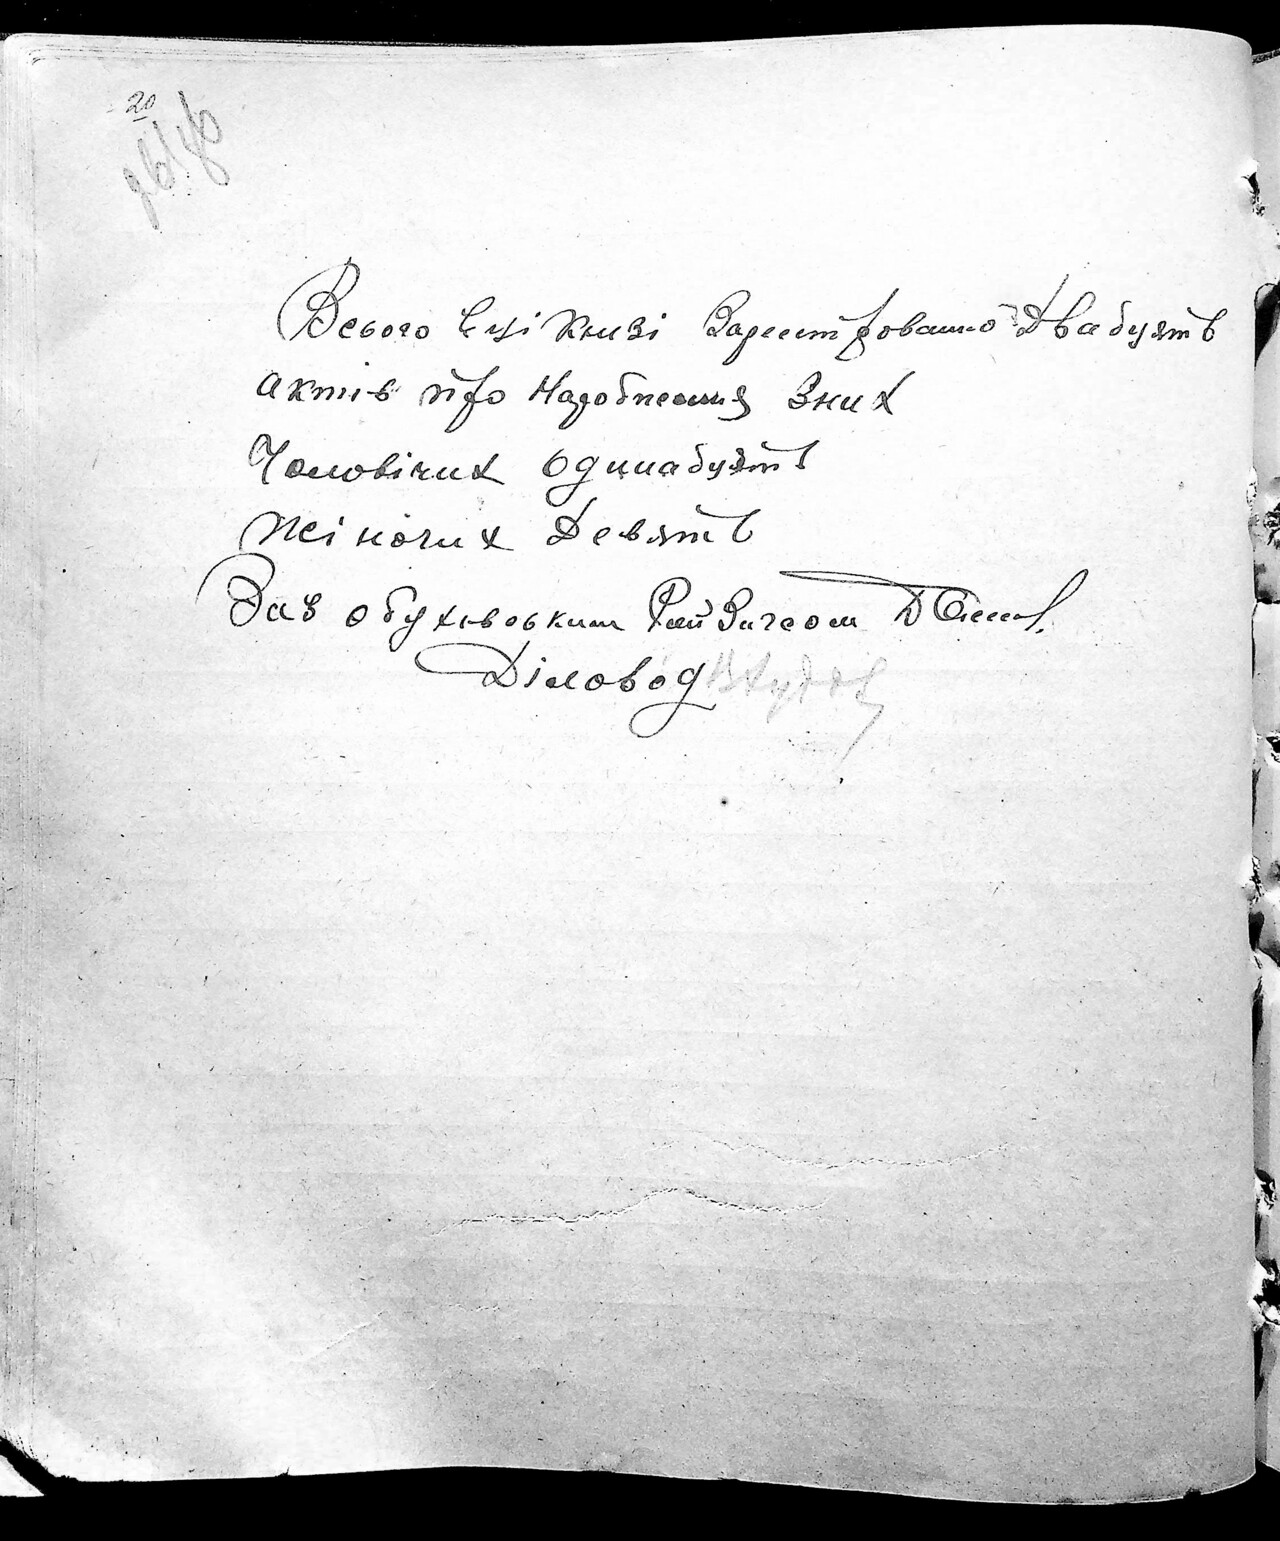 20
Всього в ці Книзі Зареєстровано Двадцять
актів про Народження Зних
Чоловічих Одинадцять
Жіночих Девять
Зав Обухівським РайЗагсом
Діловод